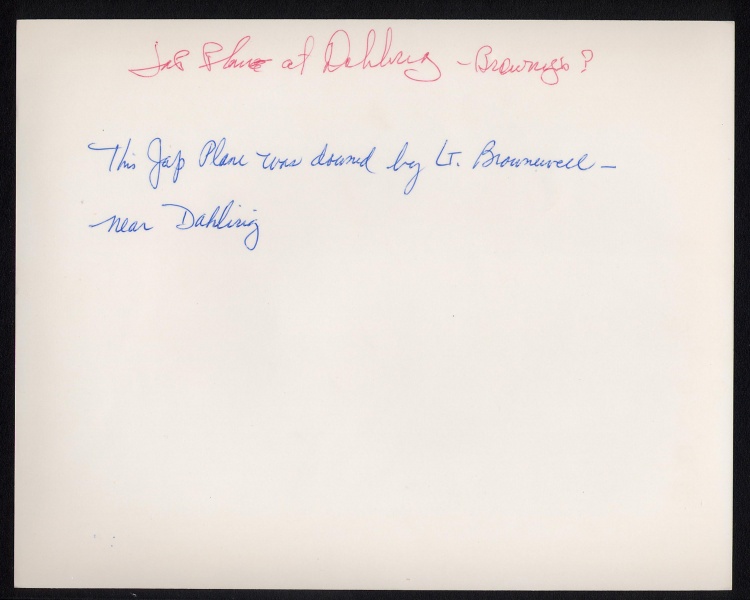 Jap Plane at Dahlbrig - Browning's?
This Jap Plane was downed by Lt. Brownewell -
near Dahlbrig